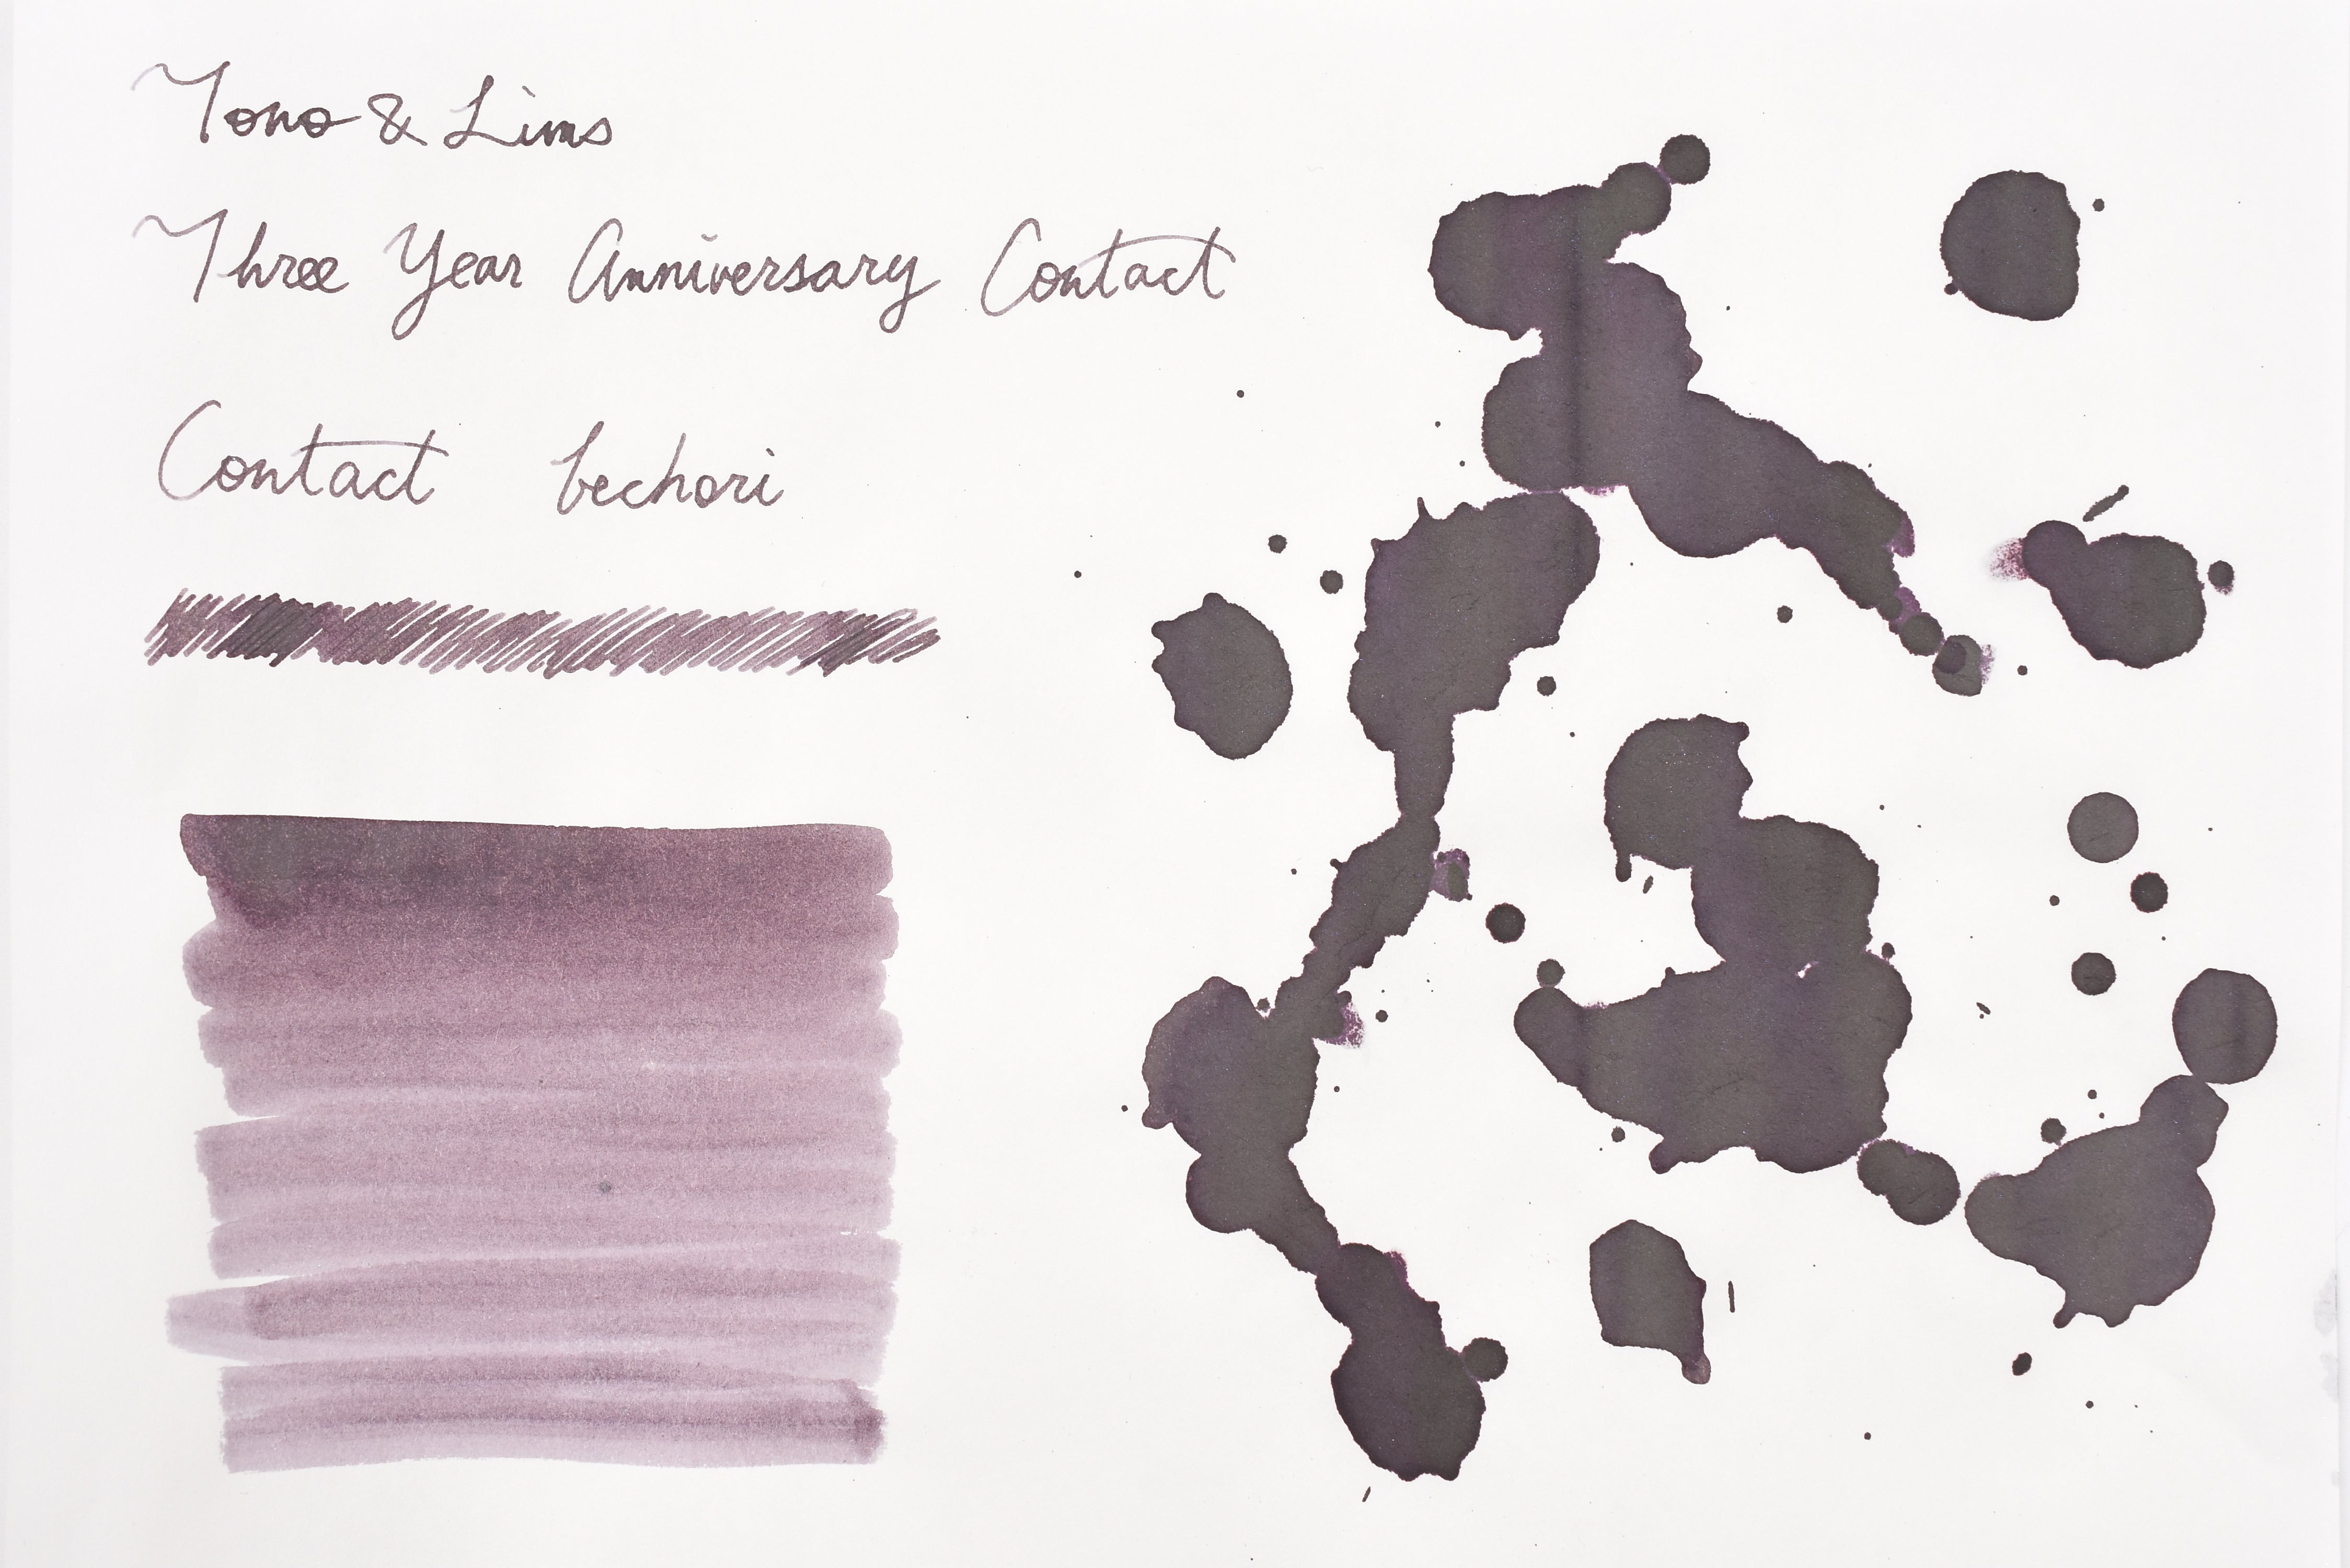 Tono & Lims
Three Year Anniversary Contact
Contact bechori